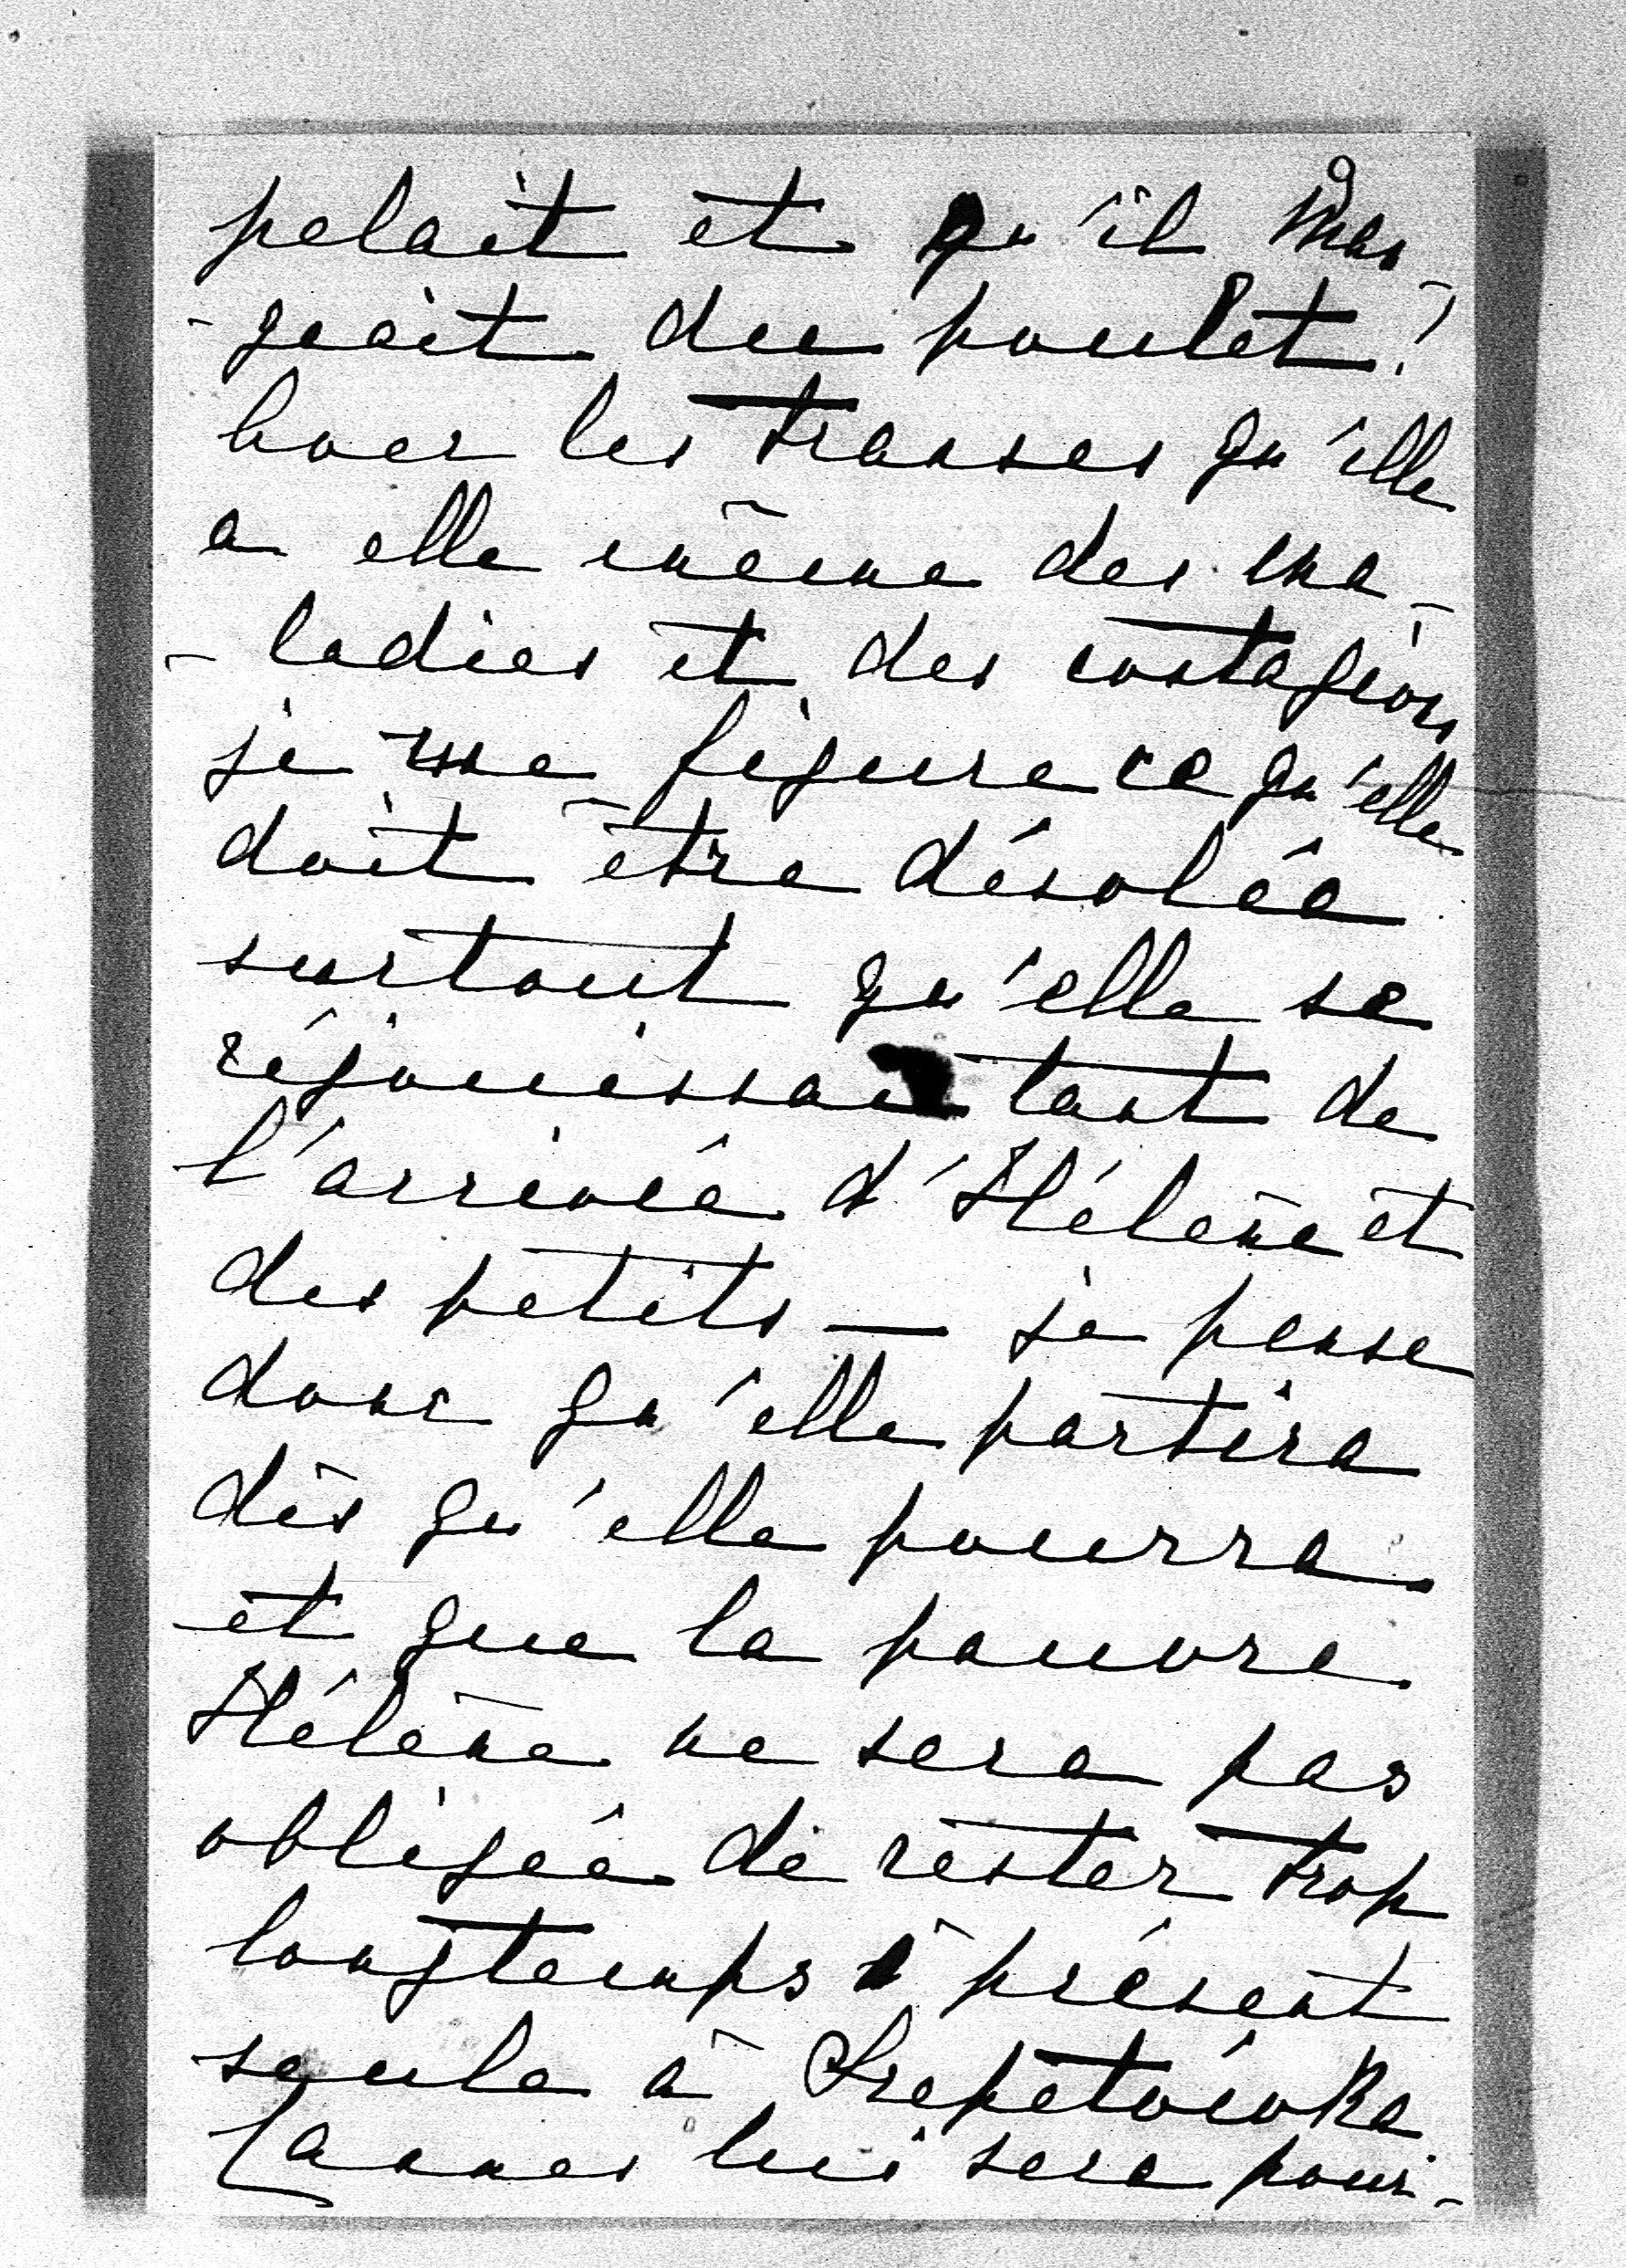 pelait et qu'il man-
-geait du poulet!
Avec les transes qu'elle
a elle même des ma-
-ladies et des contagions
je me figure ce qu'elle
doit être désolée
surtout qu'elle se
réjouissait tant de
l'arrivée d'Hélène et
des petits — je pense
donc qu'elle partira
dès qu'elle pourra
et que la pauvre
Hélène ne sera pas
obligée de rester trop
longtemps à présent
seule à Schepetovka
Cannes lui sera pour-